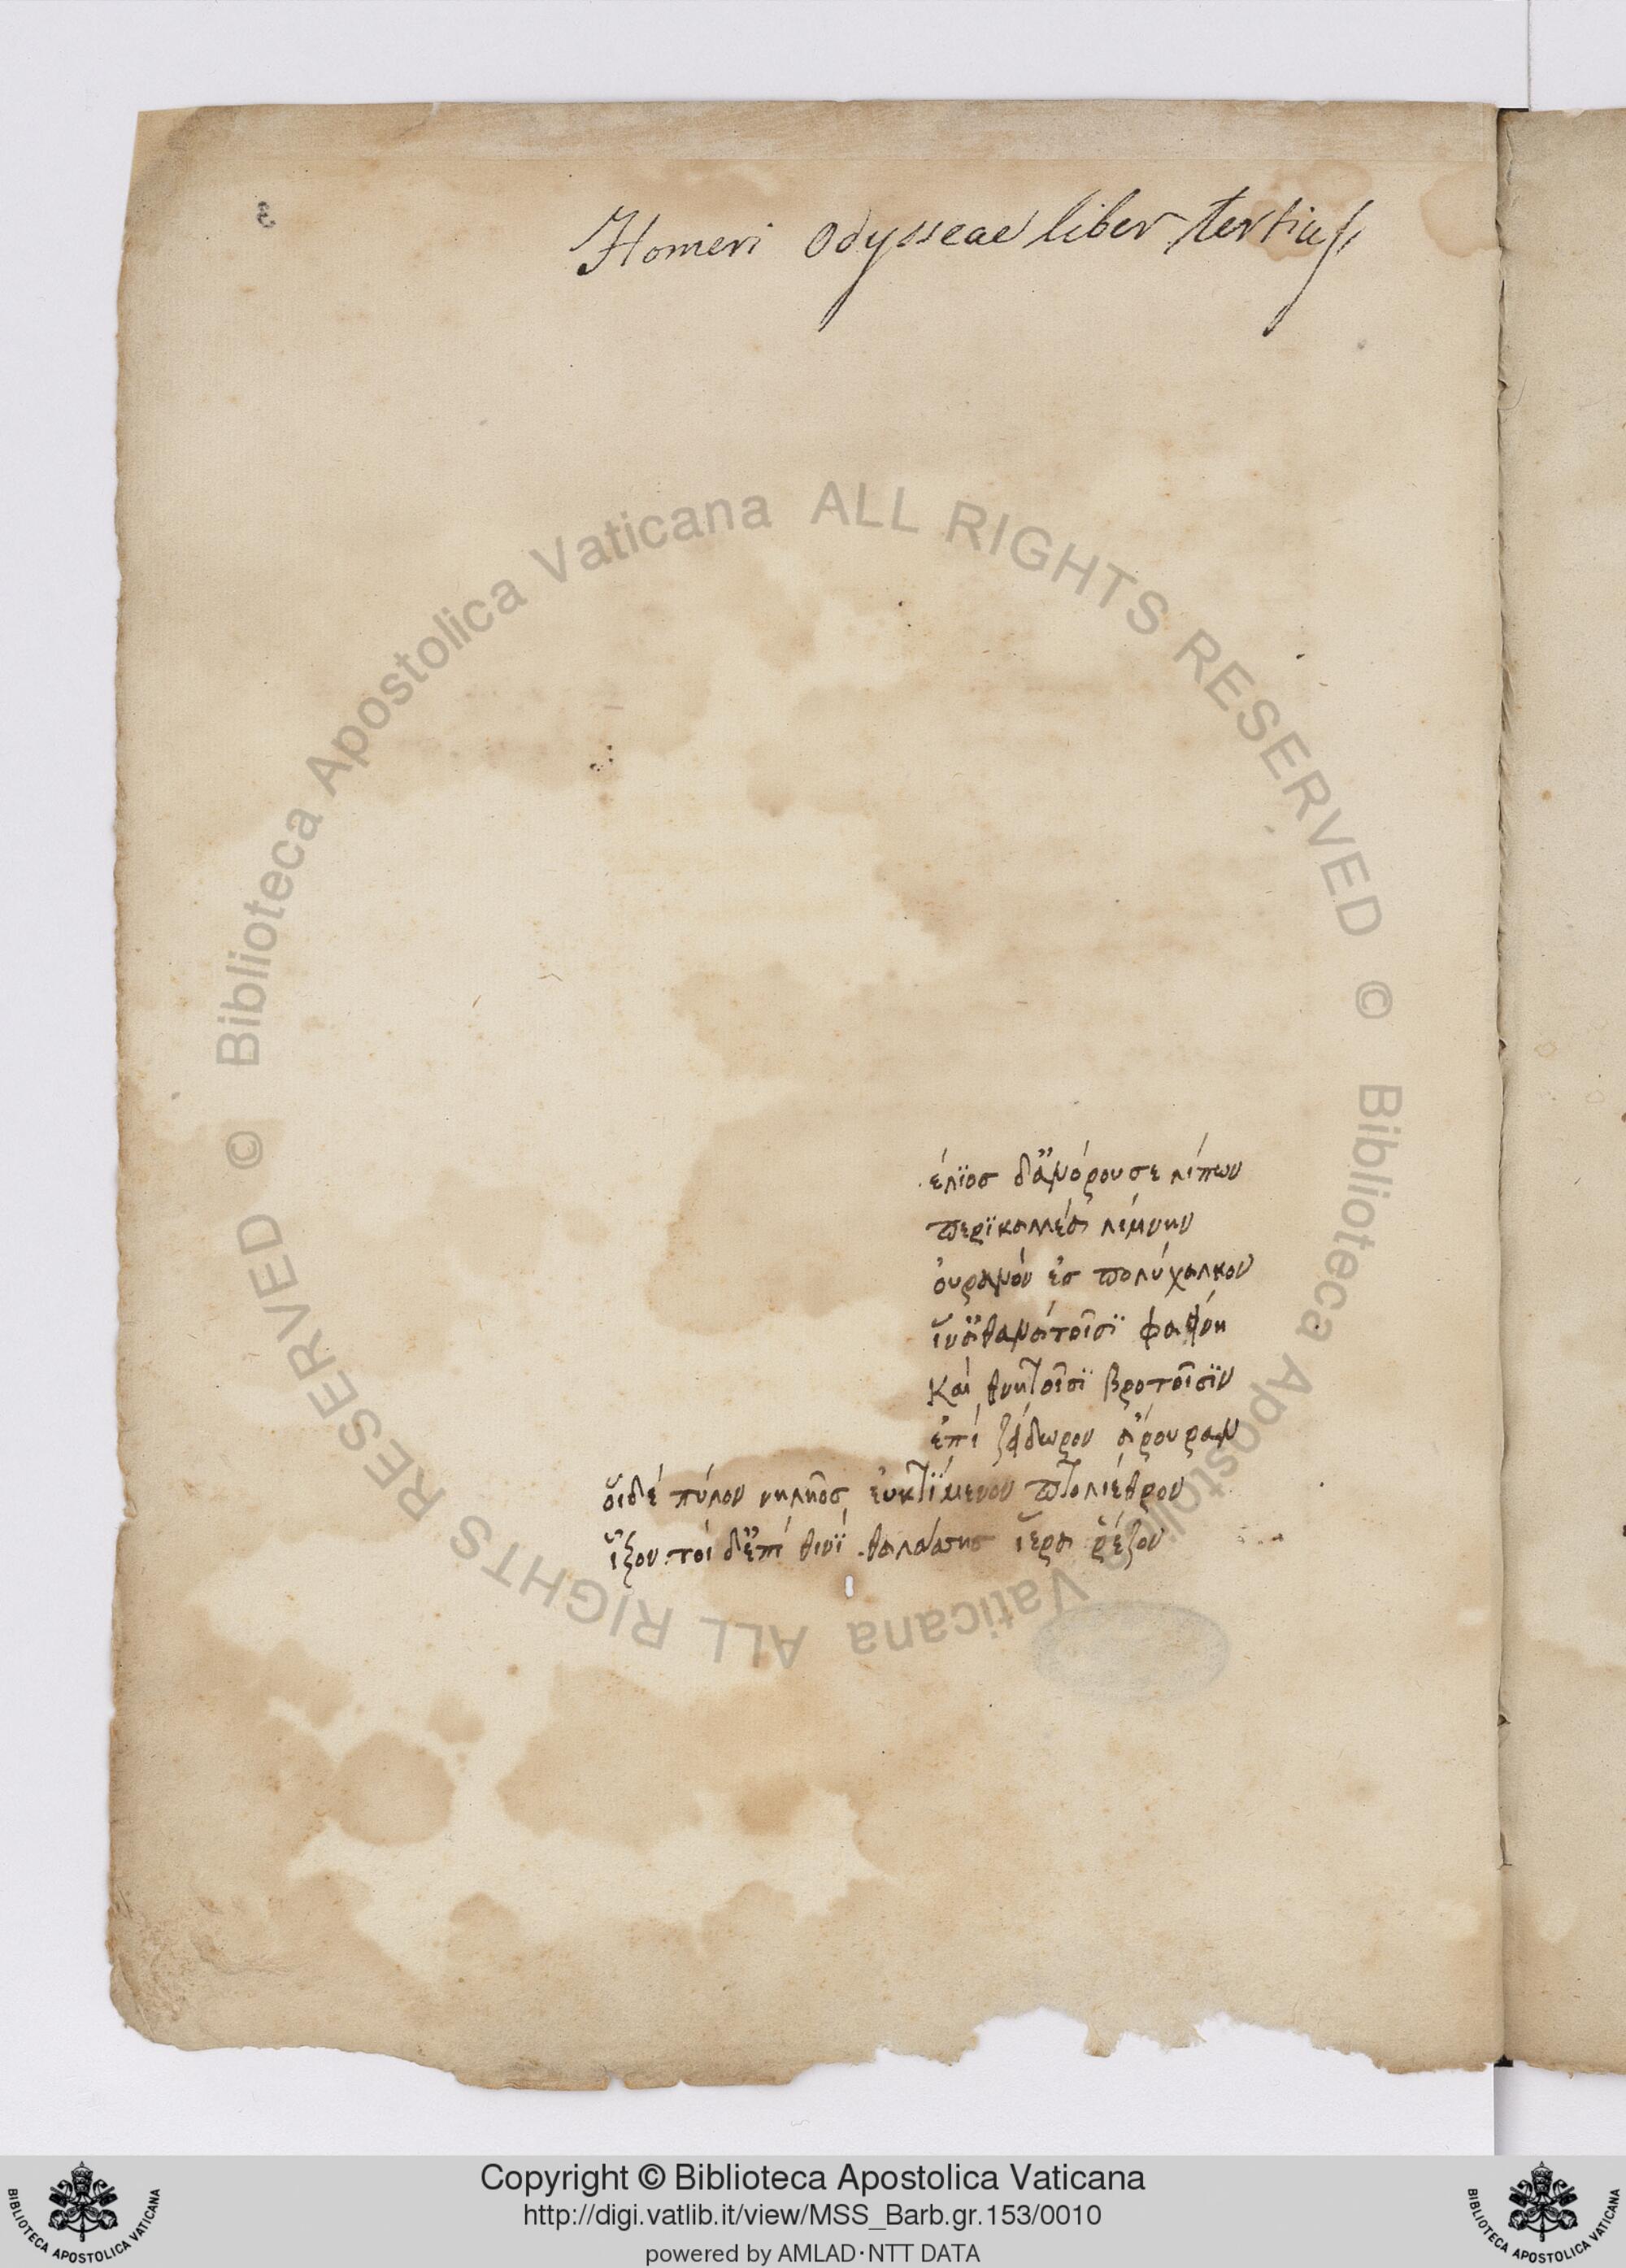 Homeri Odysseae liber tertius
έλϊοσ δἂνόρουσε λίπων
περϊκαλλέα λίμνην
ὀυρανόν ἐσ πολύχαλκον
ἵν ἀθανάτοῖσϊ φαείνη
Και θνητοῖσϊ βροτοῖσϊν
ἐπί ζείδωρον ἄρουραν
ὅιδέ πύλον νηλῆοσ ἐυκτϊμενον πτολιέθρον
ἷξον τοί δἒπί θινϊ θαλάσσησ ἵερα ῥέζον
© Biblioteca Apostolica Vaticana ALL RIGHTS RESERVED
© Biblioteca Apostolica Vaticana ALL RIGHTS RESERVED
Copyright © Biblioteca Apostolica Vaticana
http://digi.vatlib.it/view/MSS_Barb.gr.153/0010
powered by AMLAD·NTT DATA
BIBLIOTECA APOSTOLICA VATICANA
BIBLIOTECA APOSTOLICA VATICANA